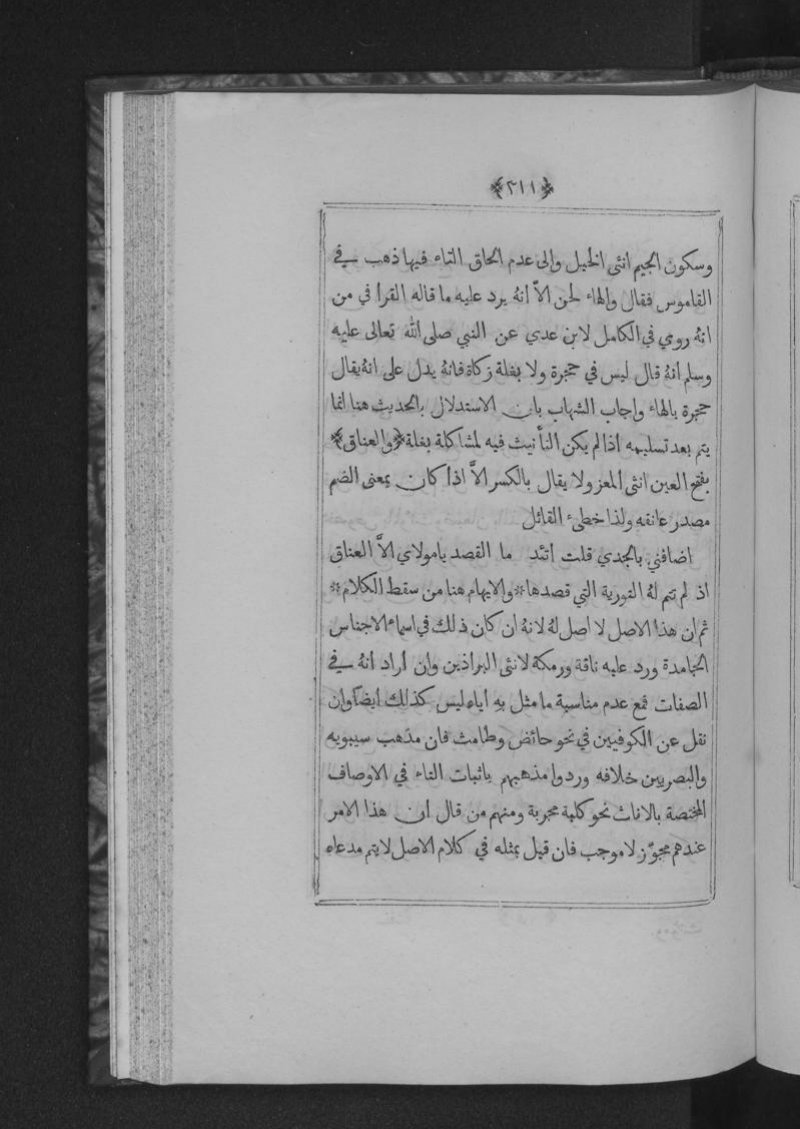 ﴿٢١١﴾
وسكون الجيم انثى الخيل والى عدم الحاق التاء فيها ذهب في
القاموس فقال والهاء لحن الاَّ انهُ يرد عليه ما قاله القرافي من
انهُ روي في الكامل لابن عدي عن النبي صلى الله تعالى عليه
وسلم انهُ قال ليس في حجرة ولا بغلة زكاة فانهُ يدل على انهُ يقال
حجرة بالهاء واجاب الشهاب بان الاستدلال بالحديث هنا انما
يتم بعد تسليمه اذا لم يكن التأنيث فيه لمشاكلة بغلة ﴿والعناق﴾
بفتح العين انثى المعز ولا يقال بالكسر الاَّ اذا كان بمعنى الضم
مصدر عانقه ولذا خطئ القائل
اضافني بالجدي قلت اتئد ما القصد يا مولاي الاَّ العناق
اذ لم تتم لهُ التورية التي قصدها * والايهام هنا من سقط الكلام *
ثم ان هذا الاصل لا اصل لهُ لانهُ ان كان ذلك في اسماء الاجناس
الجامدة ورد عليه ناقة ورمكة لانثى البراذين وان أراد انهُ في
الصفات فمع عدم مناسبة ما مثل به أياه ليس كذلك ايضاً وان
نقل عن الكوفيين في نحو حائض وطامث فان مذهب سيبويه
والبصريين خلافه وردوا مذهبهم باثبات التاء في الاوصاف
المختصة بالاناث نحو كلبة مجرية ومنهم من قال أن هذا الامر
عندهم مجوّز لا موجب فان قيل بمثله في كلام الاصل لا يتم مدعاه